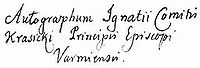 Autographum Ignatii Comitis
Krasicki Principis Episcopi
Varmiensis.